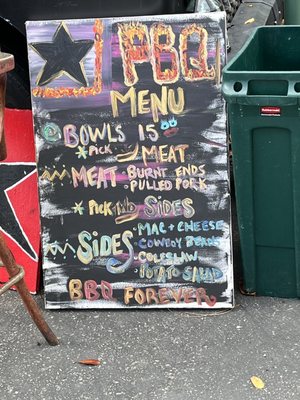 PBQ
MENU
BOWLS 15
PICK MEAT
MEAT BURNT ENDS
PULLED PORK
PICK SIDES
SIDES MAC + CHEESE
COWBOY BEANS
COLESLAW
POTATO SALAD
BBQ FOREVER
Rubbermaid